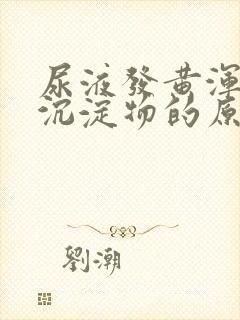 尿液發黃渾
沉淀物的原
劉潮